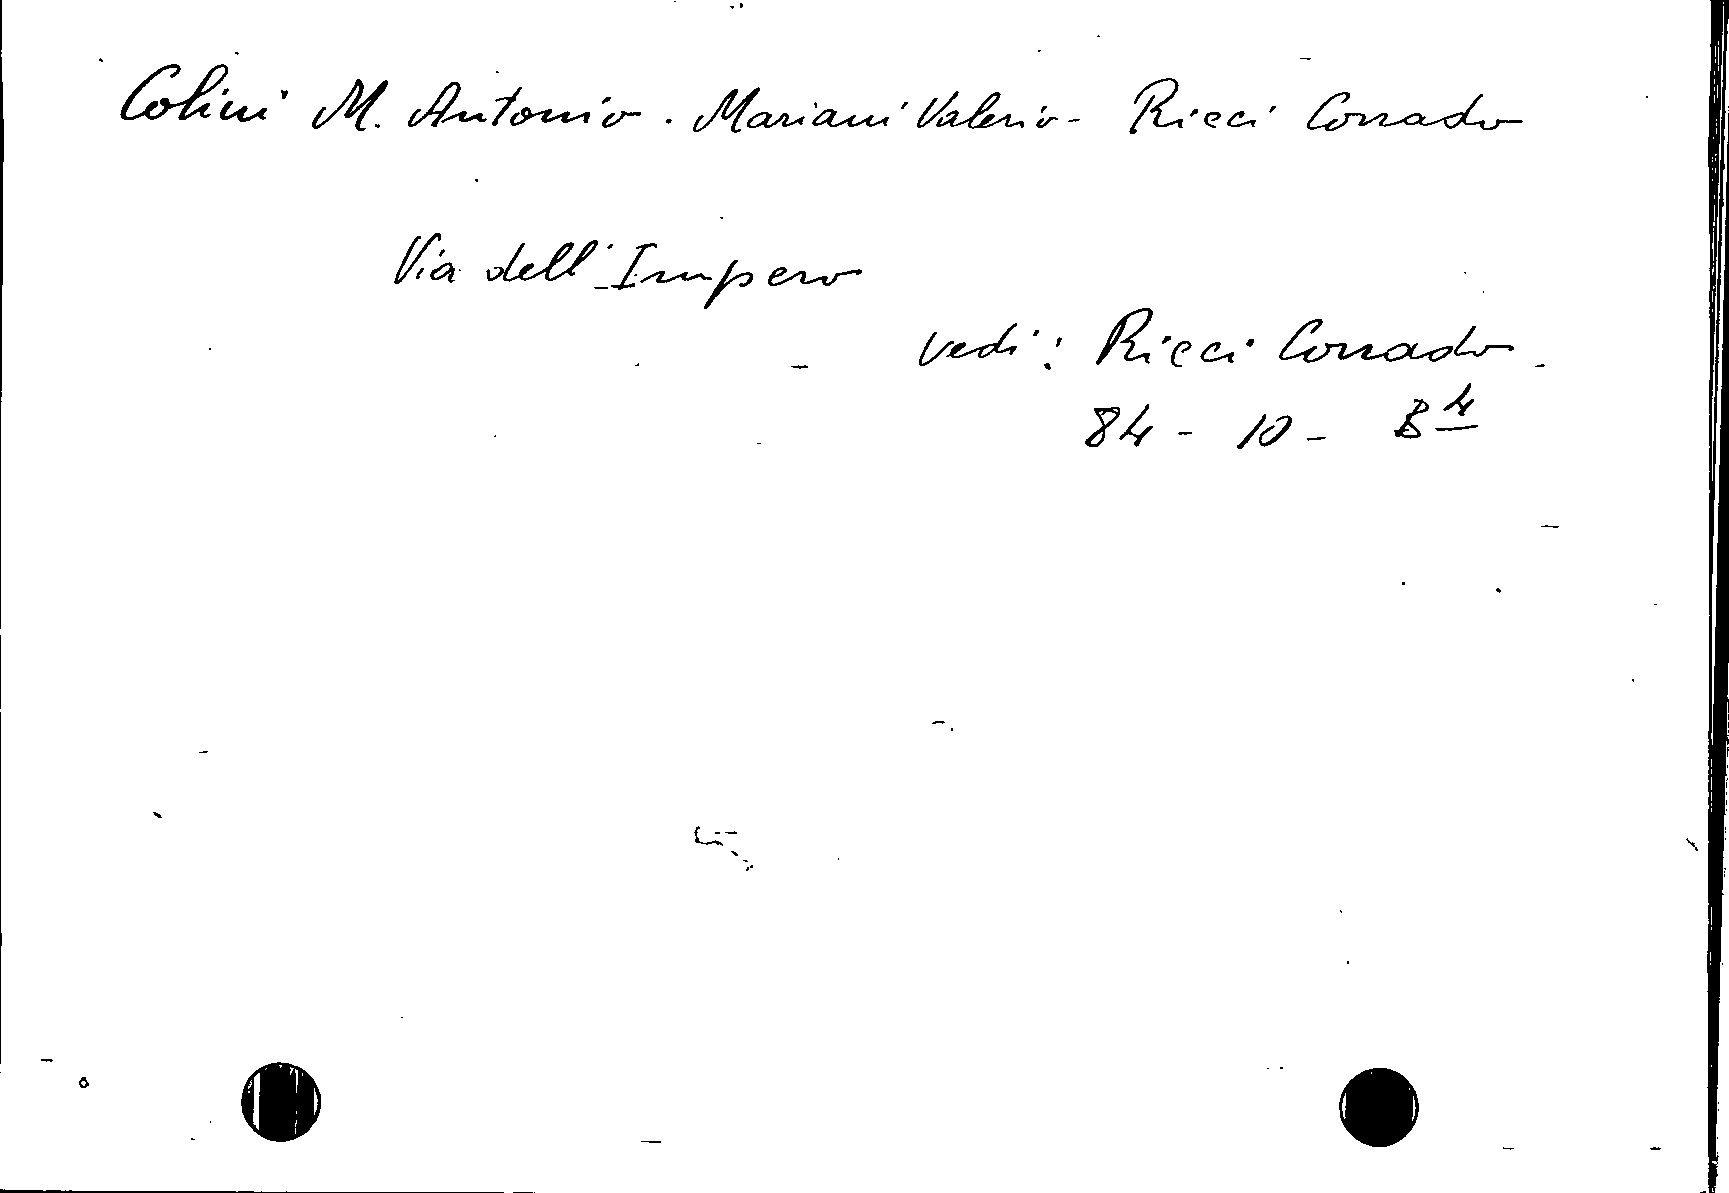 Colini M. Antonio. Mariani Valerio - Ricci Corrado
Via dell'Impero
vedi: Ricci Corrado
84 - 10 - B 4